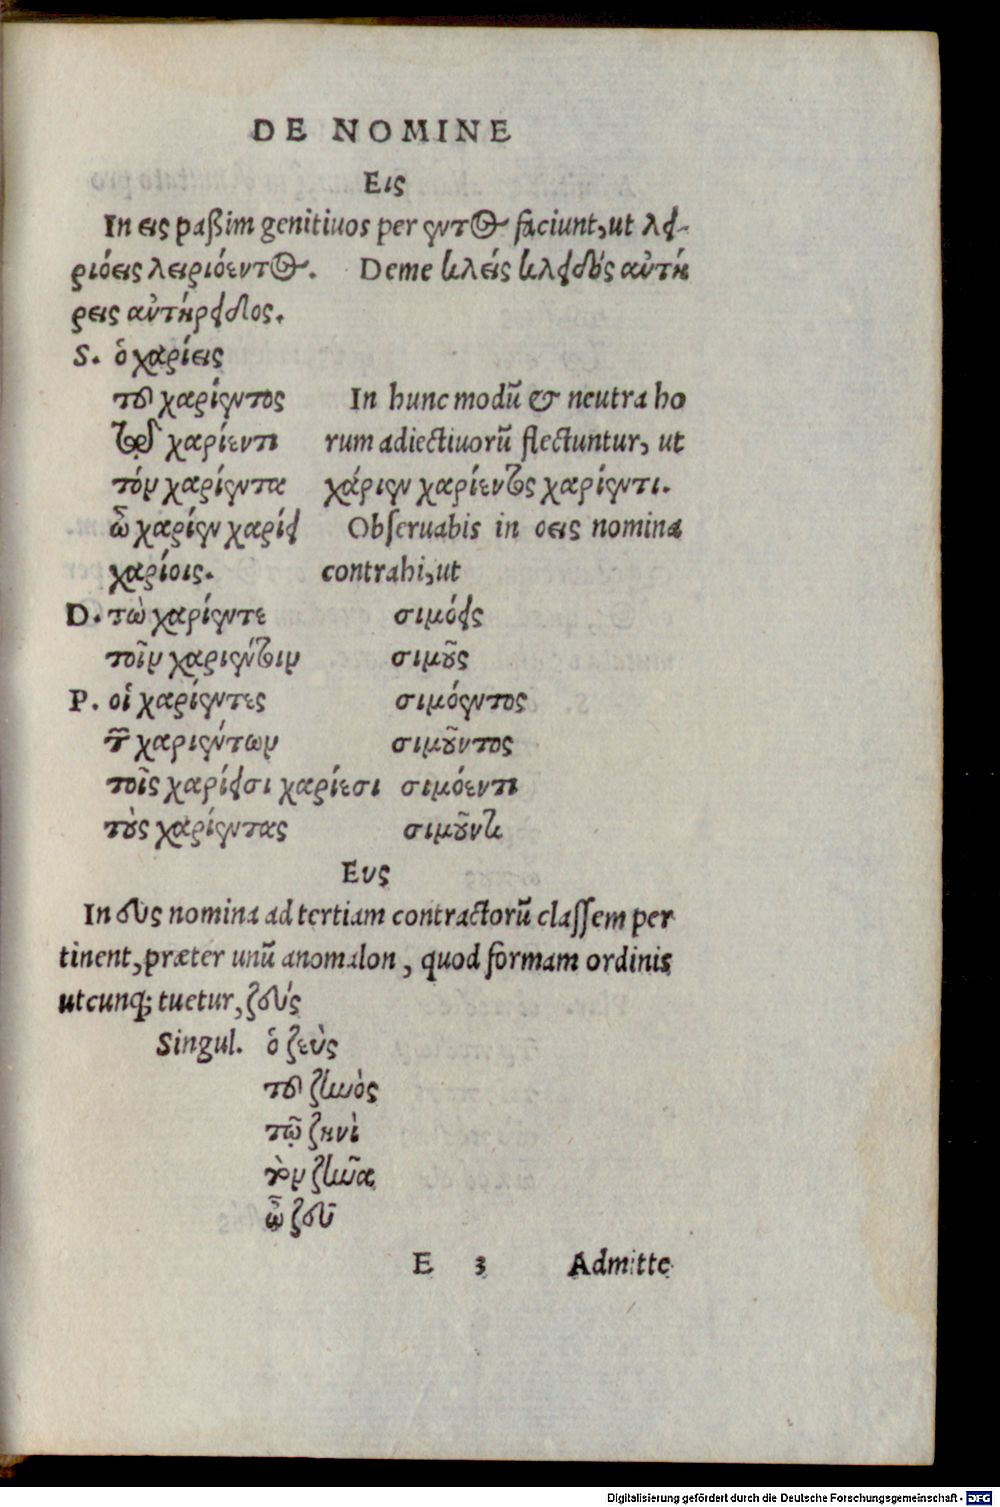 DE NOMINE
Εις
In εις paßim genitiuos per εντος faciunt, ut λει-
ριόεις λειριόεντος. Deme κλείς κλειδός αὐτή
ρεις αὐτήρειδος.
S. ὁ χαρίεις
τοῦ χαρίεντος
τῷ χαρίεντι
τόν χαρίεντα
ὦ χαρίεν χαρίει
χαρίοις.
D. τὼ χαρίεντε
τοῖν χαριέντοιν
P. οἱ χαρίεντες
τῶν χαριέντων
τοῖς χαρίεισι χαρίεσι
τοὺς χαρίεντας
In hunc modũ & neutra ho
rum adiectiuorũ flectuntur, ut
χάριεν χαρίεντος χαρίεντι.
Obſeruabis in οεις nomina
contrahi, ut
σιμόεις
σιμοῦς
σιμόεντος
σιμοῦντος
σιμόεντι
σιμοῦντι
Ευς
In ευς nomina ad tertiam contractorũ claſſem per
tinent, præter unũ anomalon, quod formam ordinis
utcunq; tuetur, ζεύς
Singul. ὁ ζεὺς
τοῦ ζηνὸς
τῷ ζηνὶ
τὸν ζῆνα
ὦ ζεῦ
E 3 Admitte
Digitalisierung gefördert durch die Deutsche Forschungsgemeinschaft - DFG